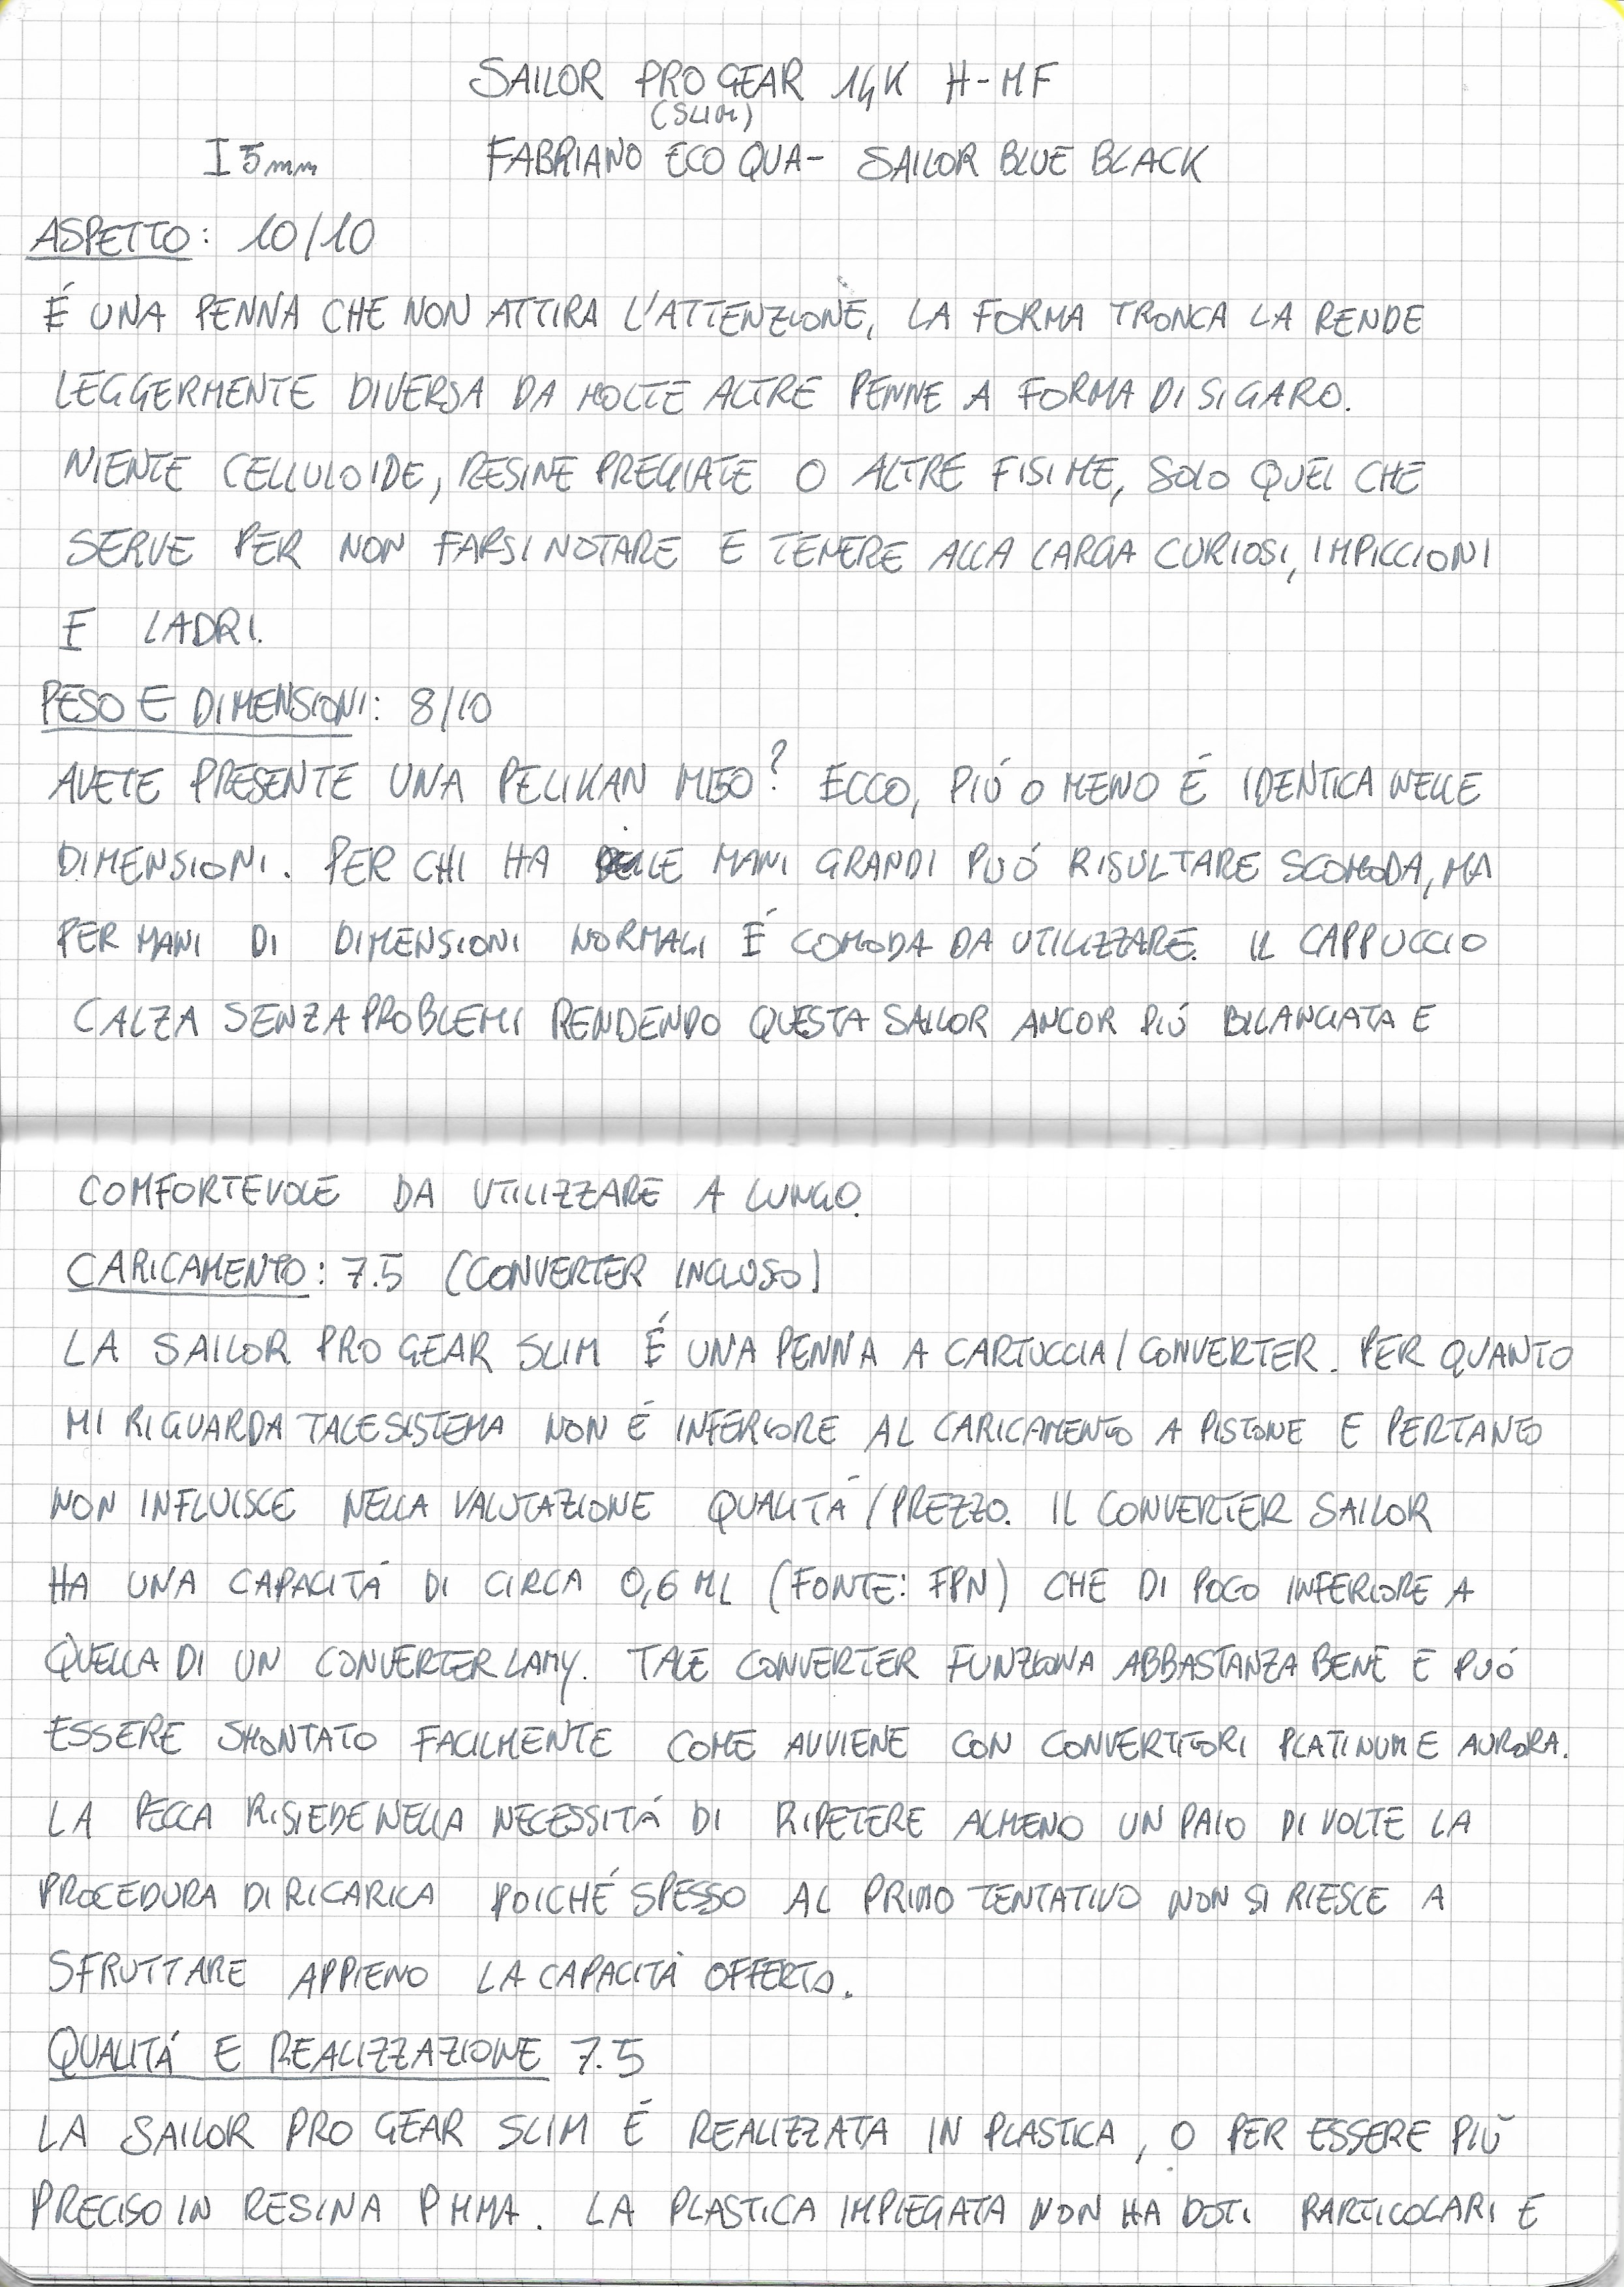 SAILOR PRO GEAR 14K H-MF
(SLIM)
I 5mm FABRIANO ECO QUA- SAILOR BLUE BLACK
ASPETTO: 10/10
É UNA PENNA CHE NON ATTIRA L'ATTENZIONE, LA FORMA TRONCA LA RENDE
LEGGERMENTE DIVERSA DA MOLTE ALTRE PENNE A FORMA DI SIGARO.
NIENTE CELLULOIDE, RESINE PREGIATE O ALTRE FISIME, SOLO QUEL CHE
SERVE PER NON FARSI NOTARE E TENERE ALLA LARGA CURIOSI, IMPICCIONI
E LADRI.
PESO E DIMENSIONI: 8/10
AVETE PRESENTE UNA PELIKAN M150? ECCO, PIÚ O MENO É IDENTICA NELLE
DIMENSIONI. PER CHI HA DELLE MANI GRANDI PUÓ RISULTARE SCOMODA, MA
PER MANI DI DIMENSIONI NORMALI É COMODA DA UTILIZZARE. IL CAPPUCCIO
CALZA SENZA PROBLEMI RENDENDO QUESTA SAILOR ANCOR PIÚ BILANCIATA E
COMFORTEVOLE DA UTILIZZARE A LUNGO.
CARICAMENTO: 7.5 (CONVERTER INCLUSO)
LA SAILOR PRO GEAR SLIM É UNA PENNA A CARTUCCIA/CONVERTER. PER QUANTO
MI RIGUARDA TALE SISTEMA NON É INFERIORE AL CARICAMENTO A PISTONE E PERTANTO
NON INFLUISCE NELLA VALUTAZIONE QUALITÁ/PREZZO. IL CONVERTER SAILOR
HA UNA CAPACITÁ DI CIRCA 0,6 ML (FONTE: FPN) CHE DI POCO INFERIORE A
QUELLA DI UN CONVERTER LAMY. TALE CONVERTER FUNZIONA ABBASTANZA BENE E PUÓ
ESSERE SMONTATO FACILMENTE COME AVVIENE CON CONVERTITORI PLATINUM E AURORA.
LA PECCA RISIEDE NELLA NECESSITÁ DI RIPETERE ALMENO UN PAIO DI VOLTE LA
PROCEDURA DI RICARICA POICHÉ SPESSO AL PRIMO TENTATIVO NON SI RIESCE A
SFRUTTARE APPIENO LA CAPACITÀ OFFERTA.
QUALITÁ E REALIZZAZIONE 7.5
LA SAILOR PRO GEAR SLIM É REALIZZATA IN PLASTICA, O PER ESSERE PIÚ
PRECISO IN RESINA PMMA. LA PLASTICA IMPIEGATA NON HA DOTI PARTICOLARI E